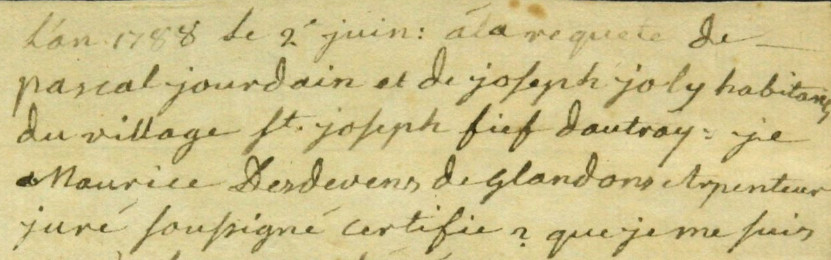 L'an 1788 le 2e juin: a la requete de
pascal jourdain et de joseph joly habitans
du village st. joseph fief dautray: je
Maurice Desdevens de Glandons Arpenteur
juré soussigné certifie ? que je me suis